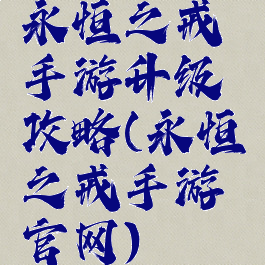 永恒之戒
手游升级
攻略(永恒
之戒手游
官网)